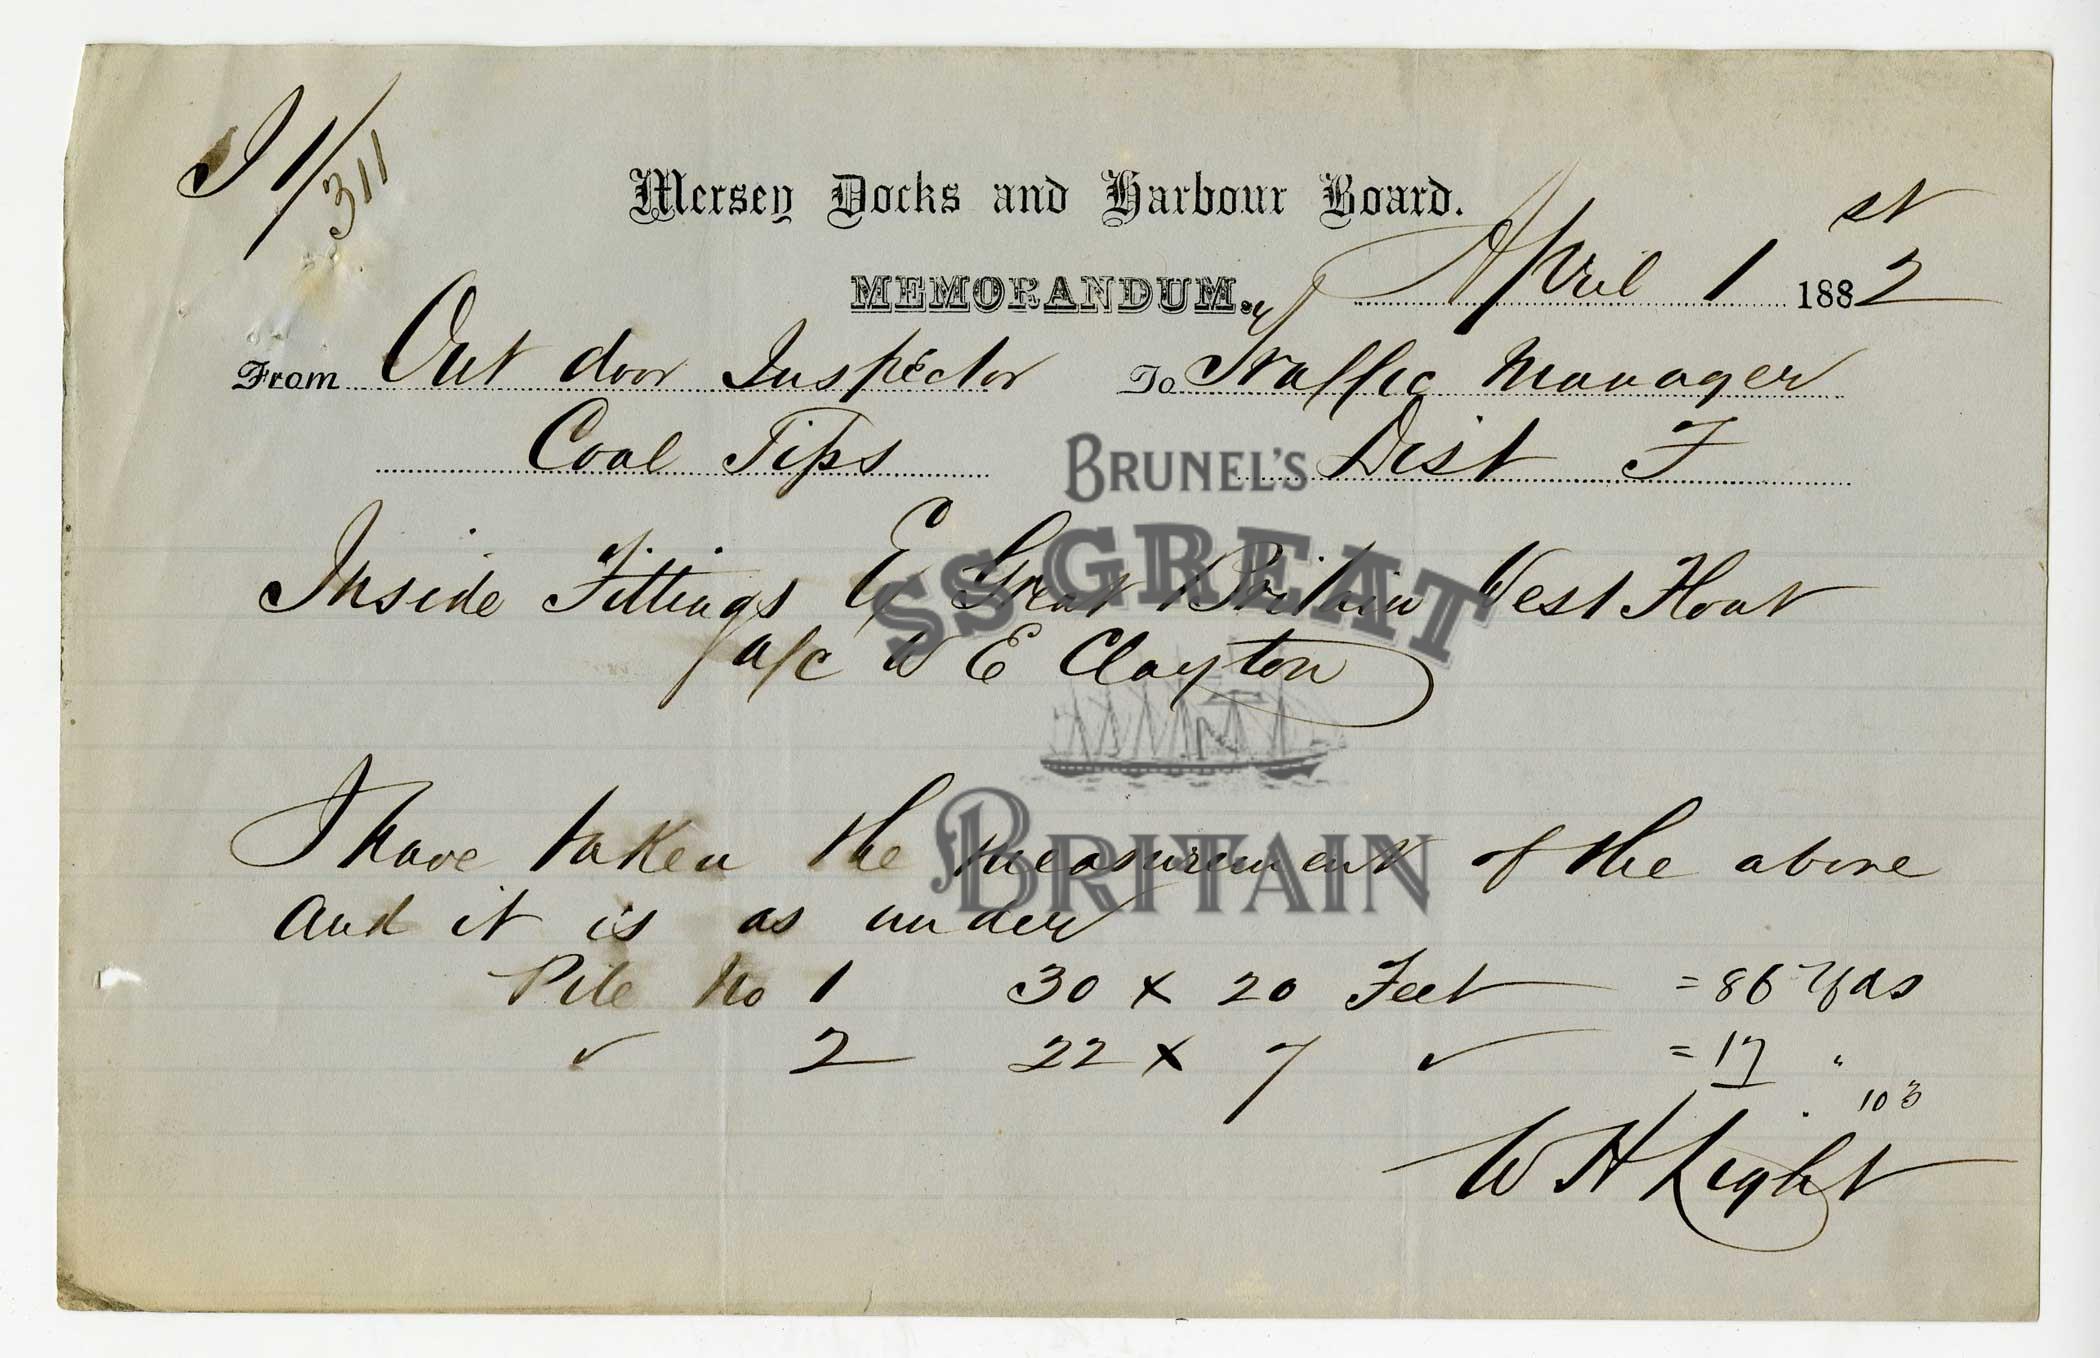 I 1/311
Mersey Docks and Harbour Board.
MEMORANDUM. April 1st 1882
From Out door Inspector To Traffic Manager
Coal Tips Dist F
Inside Fittings Ex Great Britain West Float
a/c W E Clayton
I have taken the measurement of the above
and it is as under
Pile No 1 30 x 20 Feet = 86 Yds
" 2 22 x 7 " = 17 "
103
W H Light
BRUNEL'S
SS GREAT
BRITAIN